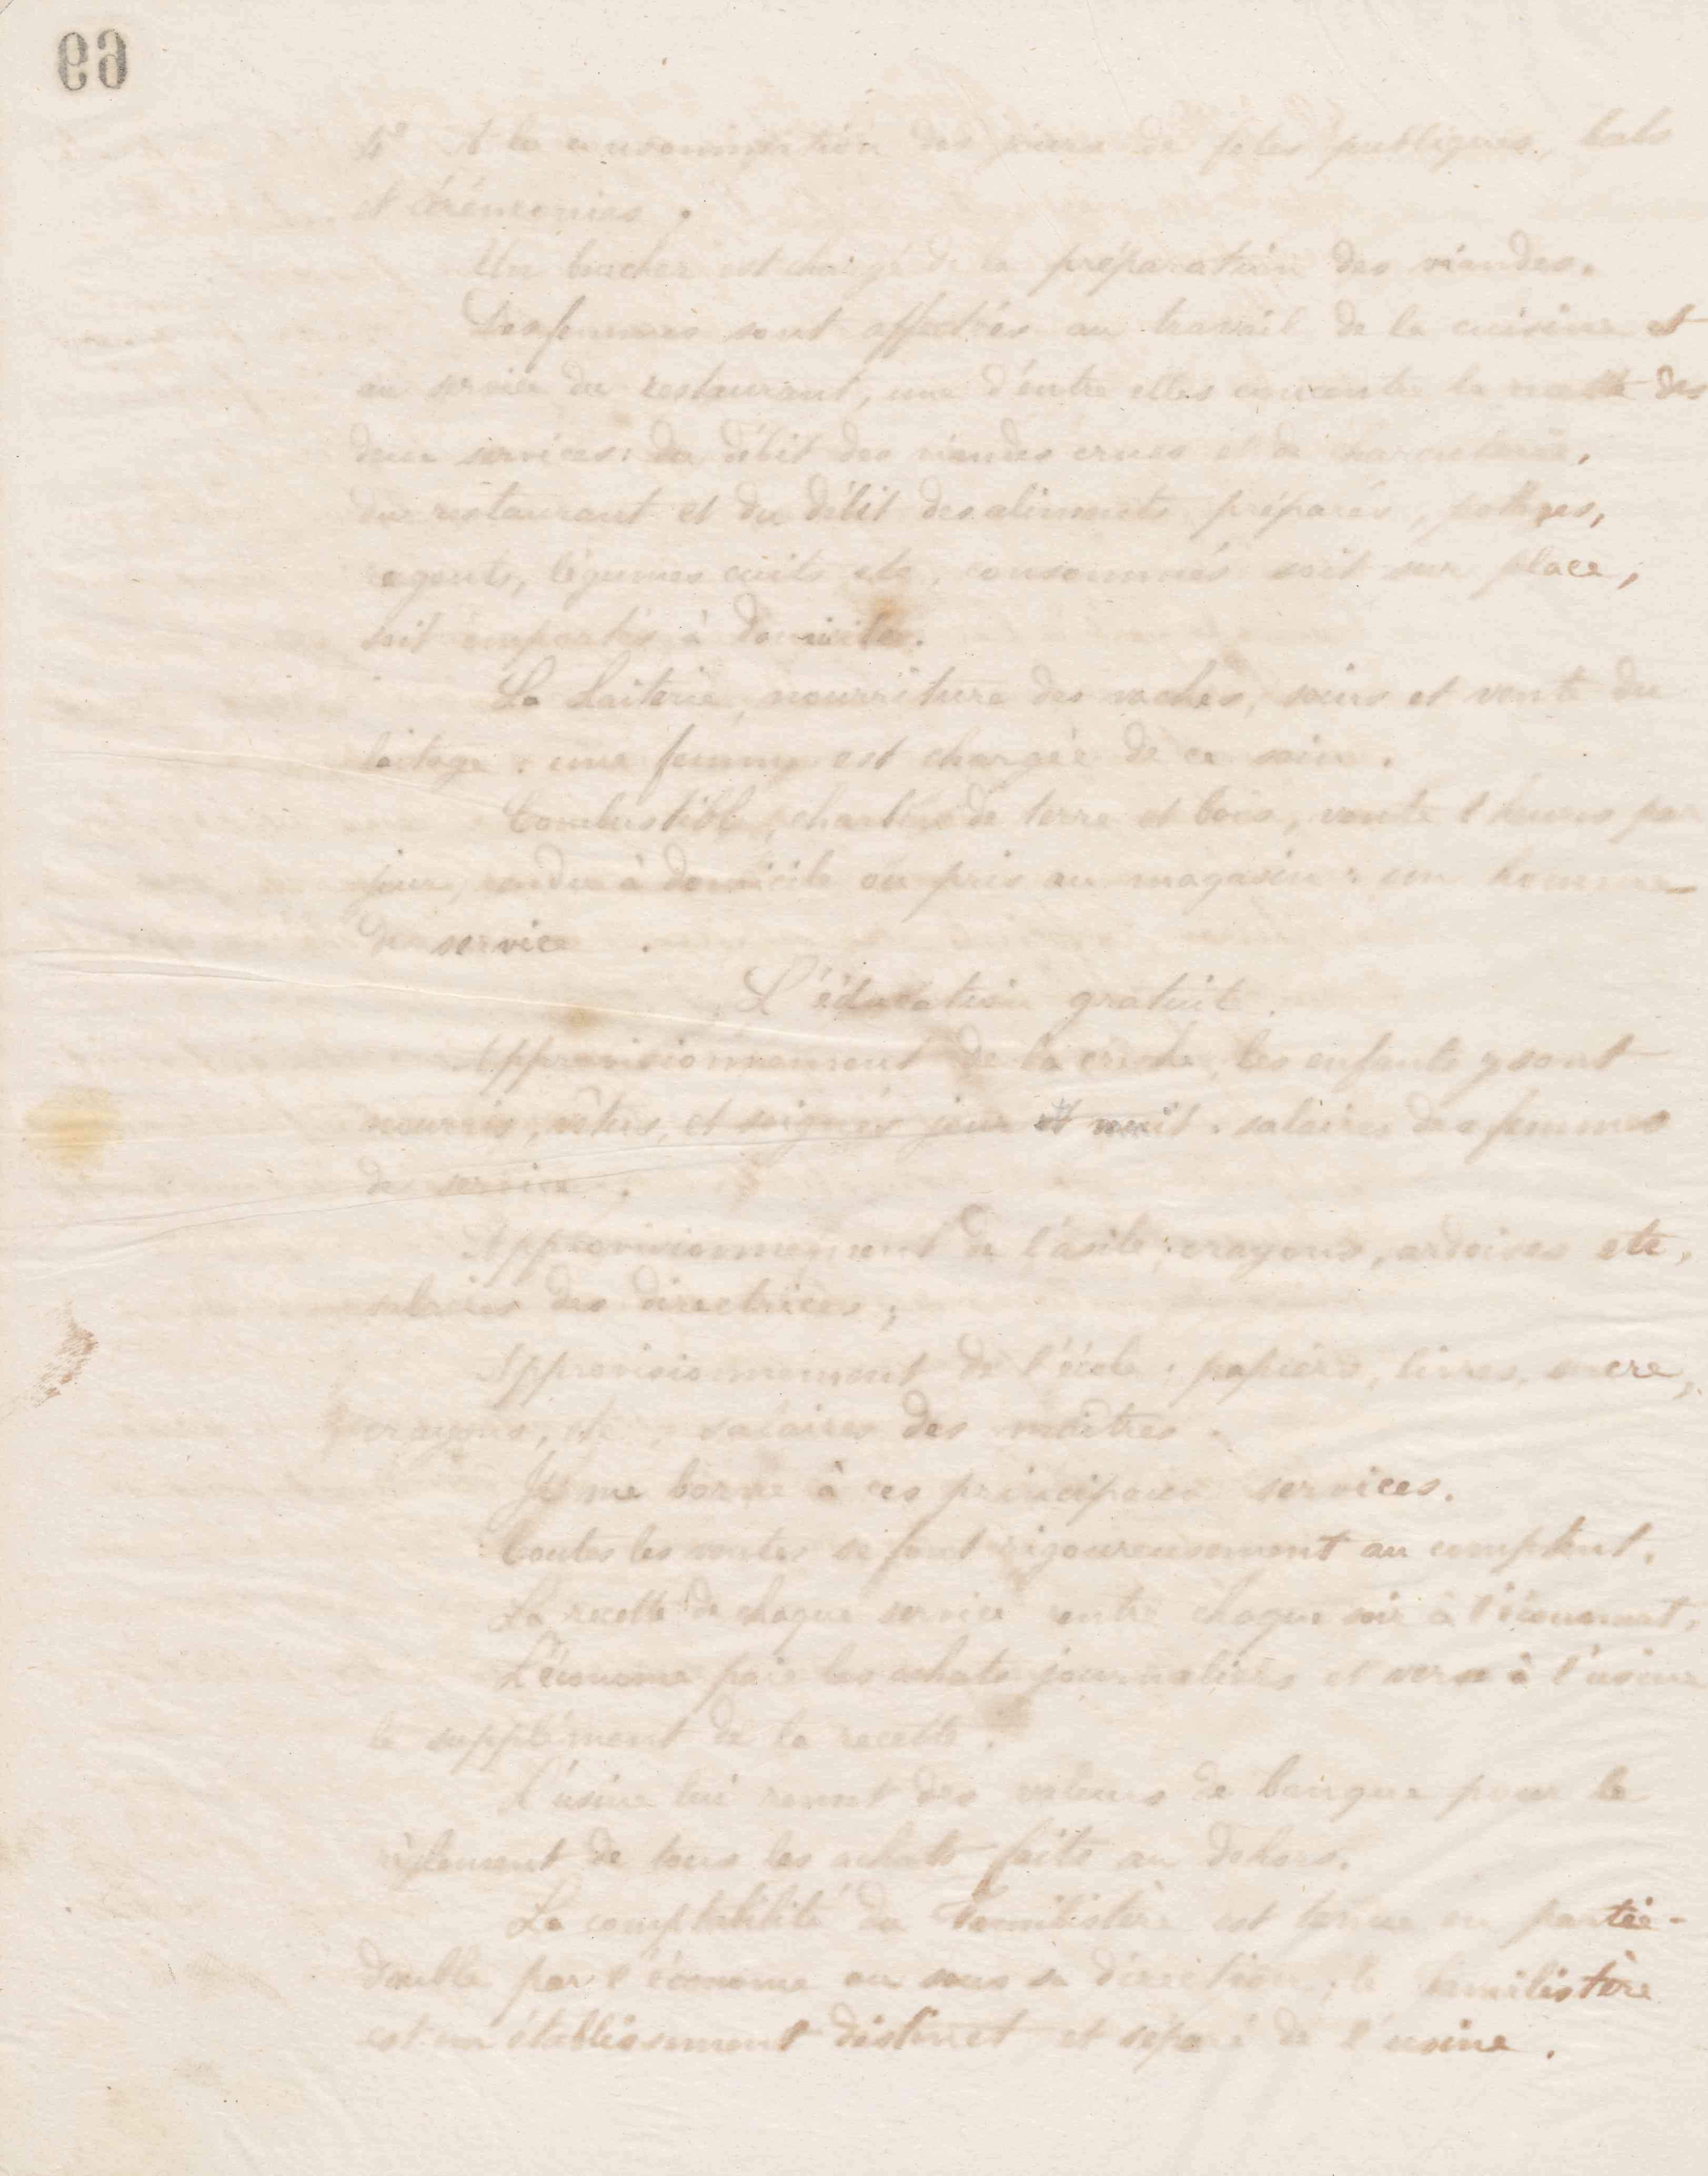 69
4° A la consommation des jours de fêtes publiques, bals
et cérémonies.
Un boucher est chargé de la préparation des viandes.
Des femmes sont affectées au travail de la cuisine et
au service du restaurant, une d'entre elles concentre la recette des
deux services: du débit des viandes crues et de charcuterie,
du restaurant et du débit des aliments préparés, potages,
ragouts, légumes cuits etc, consommés soit sur place,
soit emportés à domicile.
La Laiterie, nourriture des vaches, soins et vente du
laitage: une femme est chargée de ce soin.
Combustible, charbon de terre et bois, vente 2 heures par
jour, rendu à domicile ou pris au magasin: un homme
de service.
L'éducation gratuite.
Approvisionnement de la crèche, les enfants y sont
nourris, vêtus, et soignés jour et nuit. salaires des femmes
de service.
Approvisionnement de l'asile: crayons, ardoises etc,
salaires des directrices;
Approvisionnement de l'école: papiers, livres, encre,
crayons, etc, salaires des maîtres.
Je me borne à ces principaux services.
Toutes les ventes se font rigoureusement au comptant.
La recette de chaque service rentre chaque soir à l'économat.
L'économe paie les achats journaliers et verse à l'usine
le supplément de la recette.
L'usine lui remet des valeurs de banque pour le
règlement de tous les achats faits au dehors.
La comptabilité du Familistère est tenue en partie-
double par l'économe ou sous sa direction; le familistère
est un établissement distinct et séparé de l'usine.